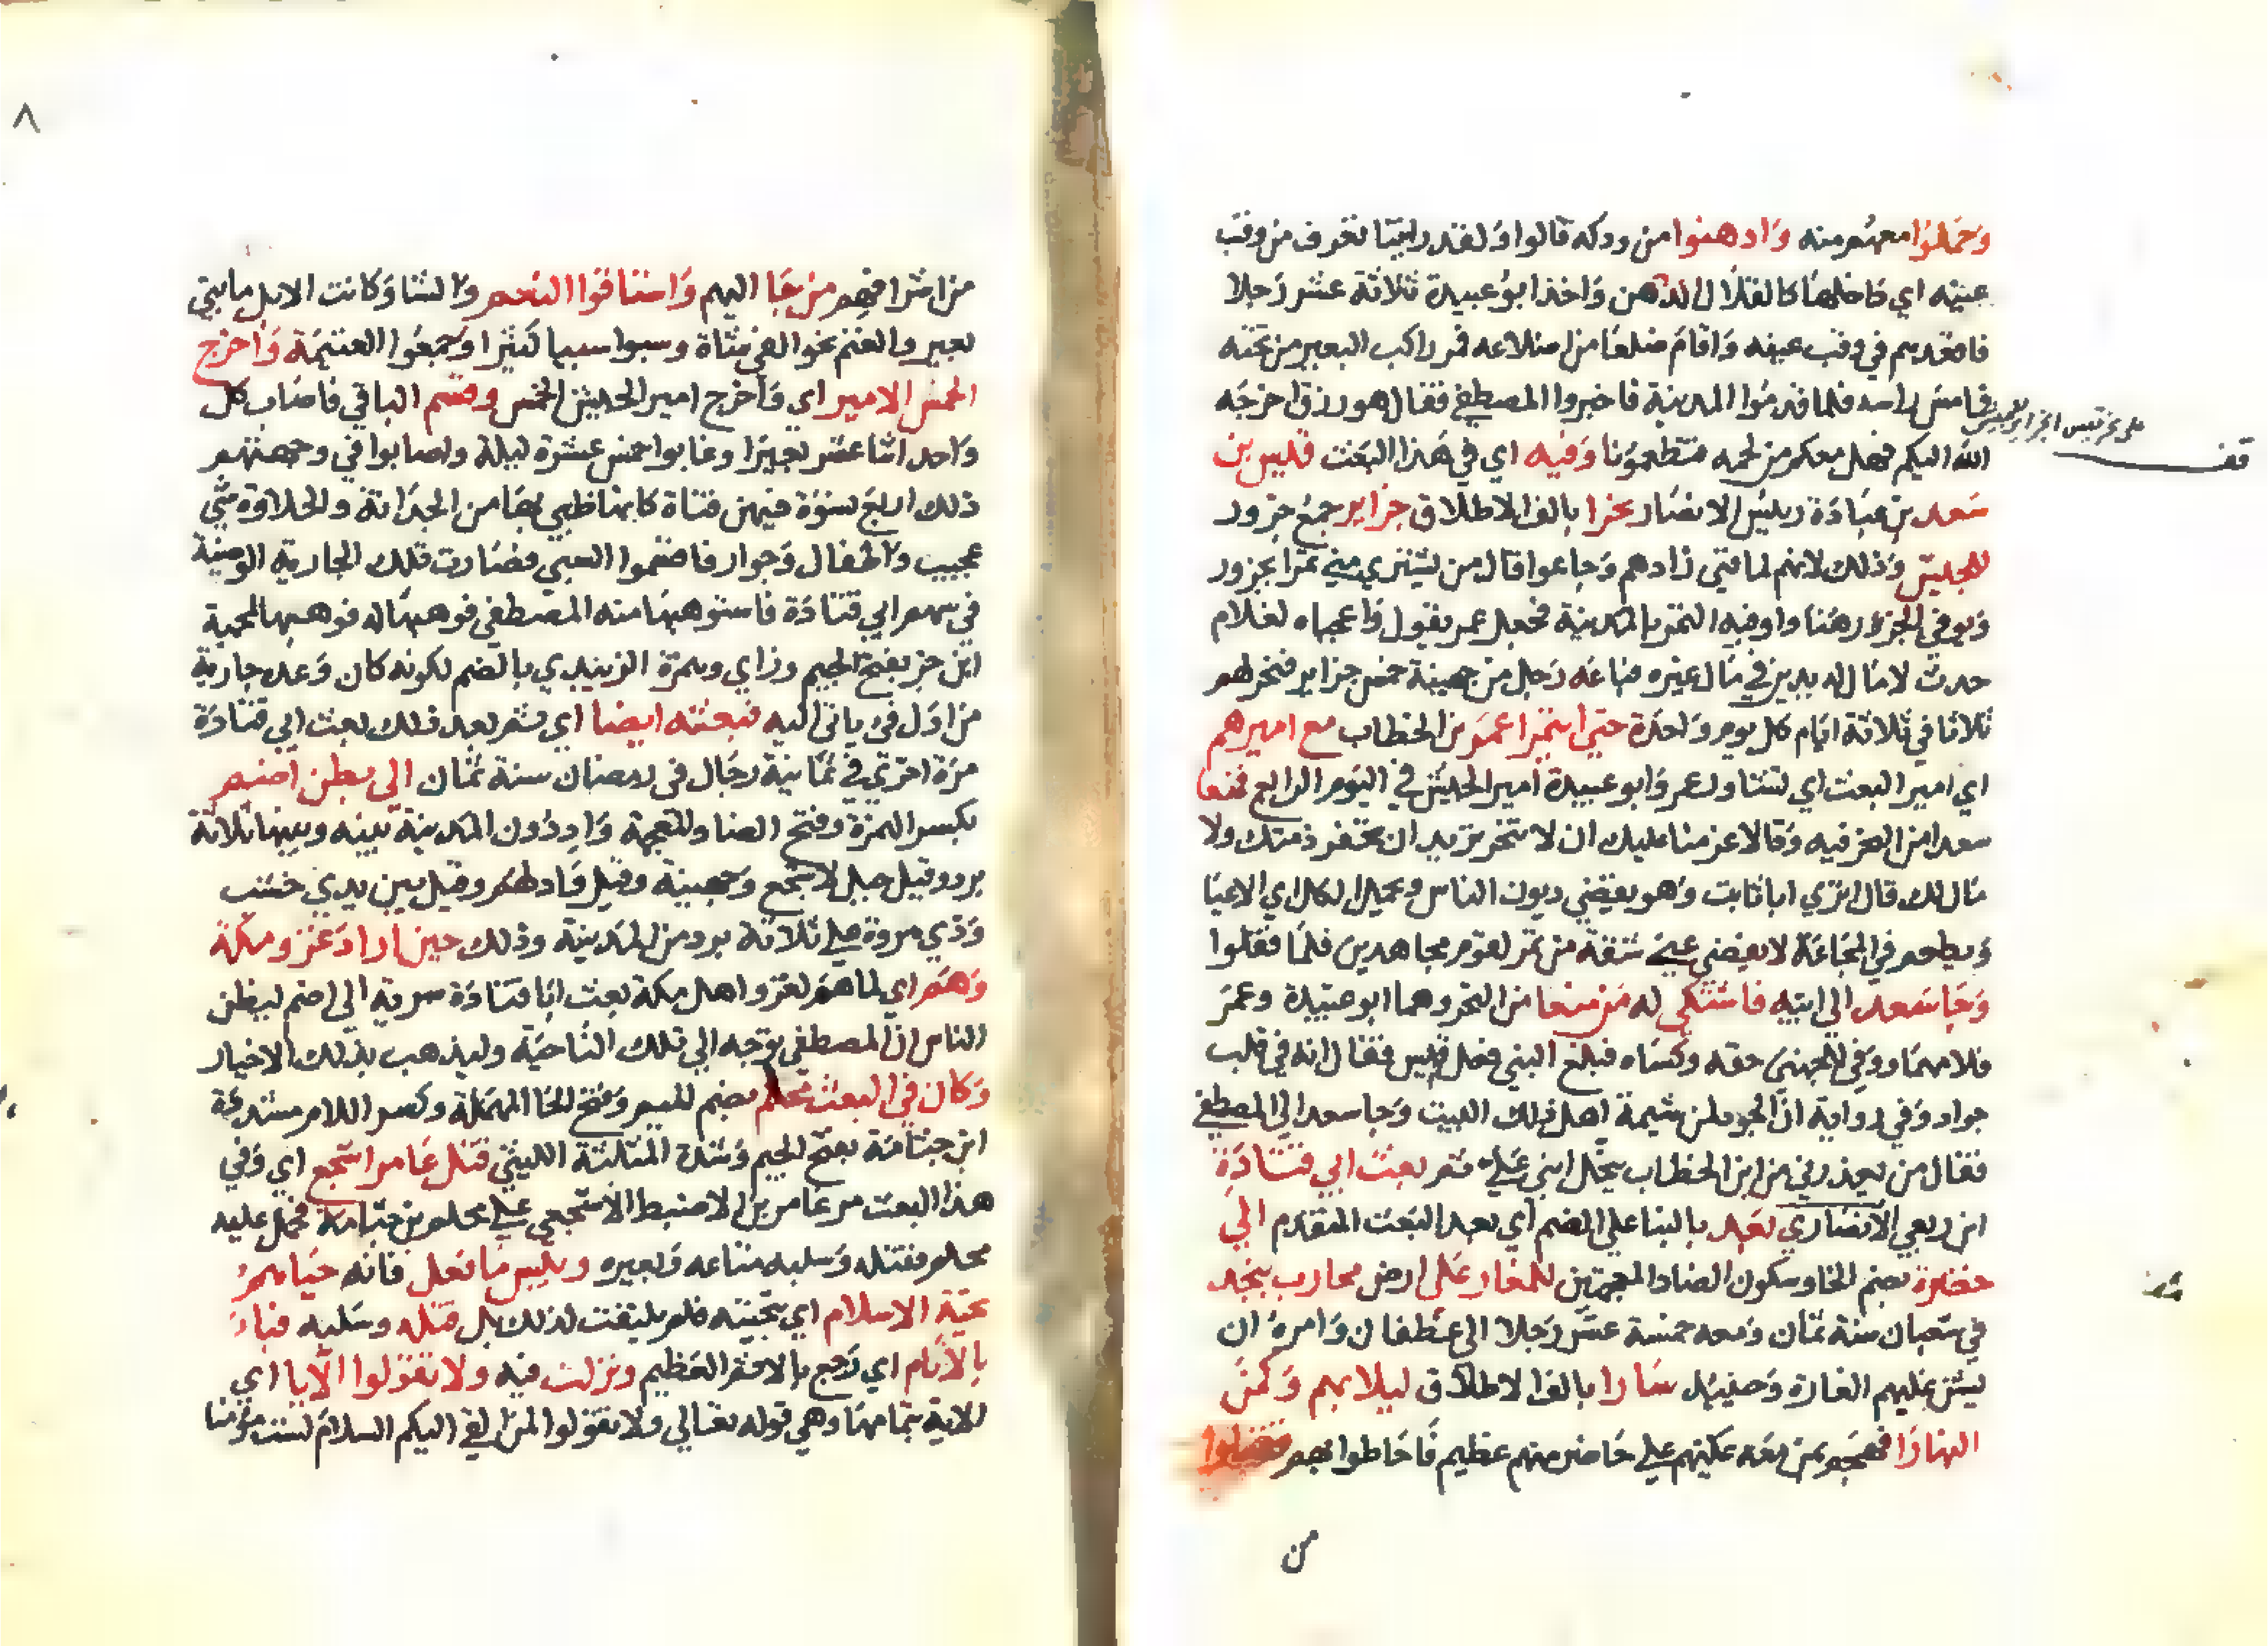 وحملوا معهم منه وادهنوا من ودكه قالوا ولقد رايتنا نغرف من وقب
عينه اي داخلها كالقلال الدهن واخذ ابو عبيدة ثلاثة عشر رجلا
فاقعدهم في وقب عينه واقام ضلعا من اضلاعه فمر راكب البعير من تحته
راسه فلما قدموا المدينة فاخبروا المصطفي فقال هو رزق اخرجه
الله اليكم فهل معكم من لحمه فتطعمونا وفيه اي في هذا البعث قيس بن
سعد بن عبادة رئيس الانصار نحرا بالف الاطلاق جزاير جمع جزور
للجيش وذلك لانهم لما فني زادهم وجاعوا قال من يشتري مني تمرا بجزور
يوفي الجزور هنا واوفيه التمر بالمدينة فجعل عمر يقول واعجباه لغلام
حدث لا مال له يدين في مال غيره فباعه رجل من جهينة خمس جزاير فنحر لهم
ثلاثا في ثلاثة ايام كل يوم واحدة حتي عمر بن الخطاب مع اميرهم
اي امير البعث اي تشاور عمر وابو عبيدة امير الجيش في اليوم الرابع فمنعا
سعدا من النحر فيه وقالا عزمنا عليك ان لا تنحر تريد ان تخفر ذمتك ولا
مال لك قال اتري ابا ثابت وهو يقضي ديون الناس ويحمل الكل اي الاعيا
ويطعم في المجاعة لا يقضي عني شقة من تمر لقوم مجاهدين فلما قفلوا
وجا سعد الي ابيه فاشتكي له من منعا من النحر وهما ابو عبيدة وعمر
فلامهما ووفي للجهني حقه وكساه فبلغ النبي فعل قيس فقال انه في قلب
جواد وفي رواية ان الجود لمن شيمة اهل ذلك البيت وجا سعد الي المصطفي
فقال من يعذرني من ابن الخطاب يبخل ابني علي ثم بعث ابي قتادة
ابن ربعي الانصاري بعد بالبنا علي الضم اي بعد البعث المتقدم الي
خضرة بضم الخا وسكون الضاد المعجمتين للمغار علي ارض محارب بنجد
في شعبان سنة ثمان ومعه خمسة عشر رجلا الي غطفان وامره ان
يشن عليهم الغارة وحينئذ سارا بالف الاطلاق ليلا بهم وكمن
النهارا فهجم بمن معه عليهم علي حاضر منهم عظيم فاحاطوا بهم فقتلوا
من
قف
علي نحر قيس الجزاير للجيش
٨
من اشرافهم من جا اليهم واستاقوا النعم والشا وكانت الابل مايتي
بعير والغنم نحو الفي شاة وسبوا سبيا كثيرا وجمعوا الغنيمة واخرج
الخمس الامير اي واخرج امير الجيش الخمس وقسم الباقي فاصاب كل
واحد اثنا عشر بعيرا وغابوا خمس عشرة ليلة واصابوا في وجهتهم
ذلك اربع نسوة فيهن فتاة كانها ظبي بها من الحداثة والحلاوة شي
عجيب واطفال وجوار فاقتسموا السبي فصارت تلك الجارية الوضيئة
في سهم ابي قتادة فاستوهبها منه المصطفي فوهبها له فوهبها لمحمية
ابن جز بفتح الجيم وزاي وهمزة الزبيدي بالضم لكونه كان وعده جارية
من اول في ياتي اليه فبعثه ايضا اي ثم بعد ذلك بعث ابي قتادة
مرة اخري في ثمانية رجال في رمضان سنة ثمان الي بطن اضم
بكسر الهمزة وفتح الضاد المعجمة واد دون المدينة بينه وبينها ثلاثة
برد وقيل جبل لاشجع وجهينة وقيل واد لهم وقيل بين يدي خشب
وذي مروة علي ثلاثة برد من المدينة وذلك حين اراد غزو مكة
وهم اي لما هم لغزو اهل مكة بعث ابا قتادة سرية الي اضم ليظن
الناس ان المصطفي توجه الي تلك الناحية وليذهب بذلك الاخبار
وكان في البعث محلم بضم الميم وفتح الحا المهملة وكسر اللام مشددة
ابن جثامة بفتح الجيم وشدة المثلثة الليثي قتل عامر اشجع اي وفي
هذا البعث مر عامر بن الاضبط الاشجعي علي محلم بن جثامة فحمل عليه
محلم فقتله وسلبه متاعه وبعيره وبئس ما فعل فانه حياهم
تحية الاسلام اي بتحيته فلم يلتفت لذلك بل قتله وسلبه فباء
بالاثام اي رجع بالاثم العظيم ونزلت فيه ولا تقولوا الايا اي
الاية بتمامها وهي قوله تعالي ولا تقولوا لمن القي اليكم السلام لست مؤمنا